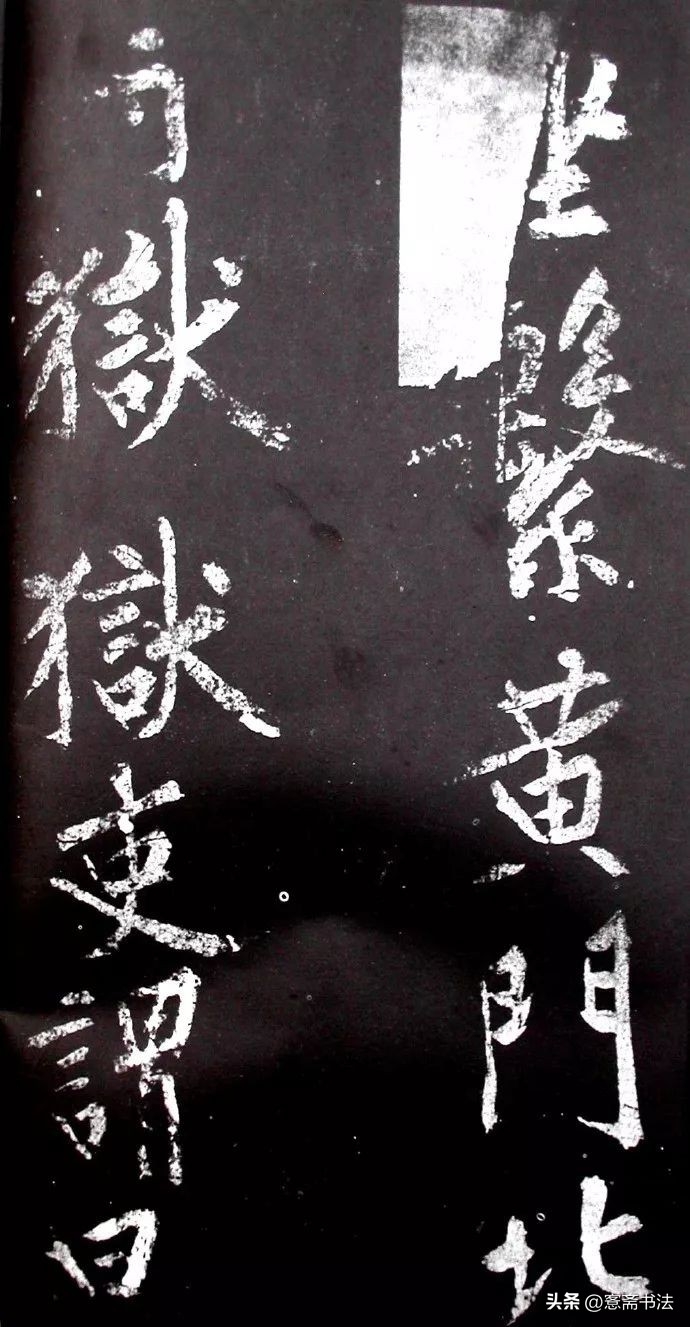 坐繫黄門北
寺獄獄吏謂曰
头条 @愙斋书法